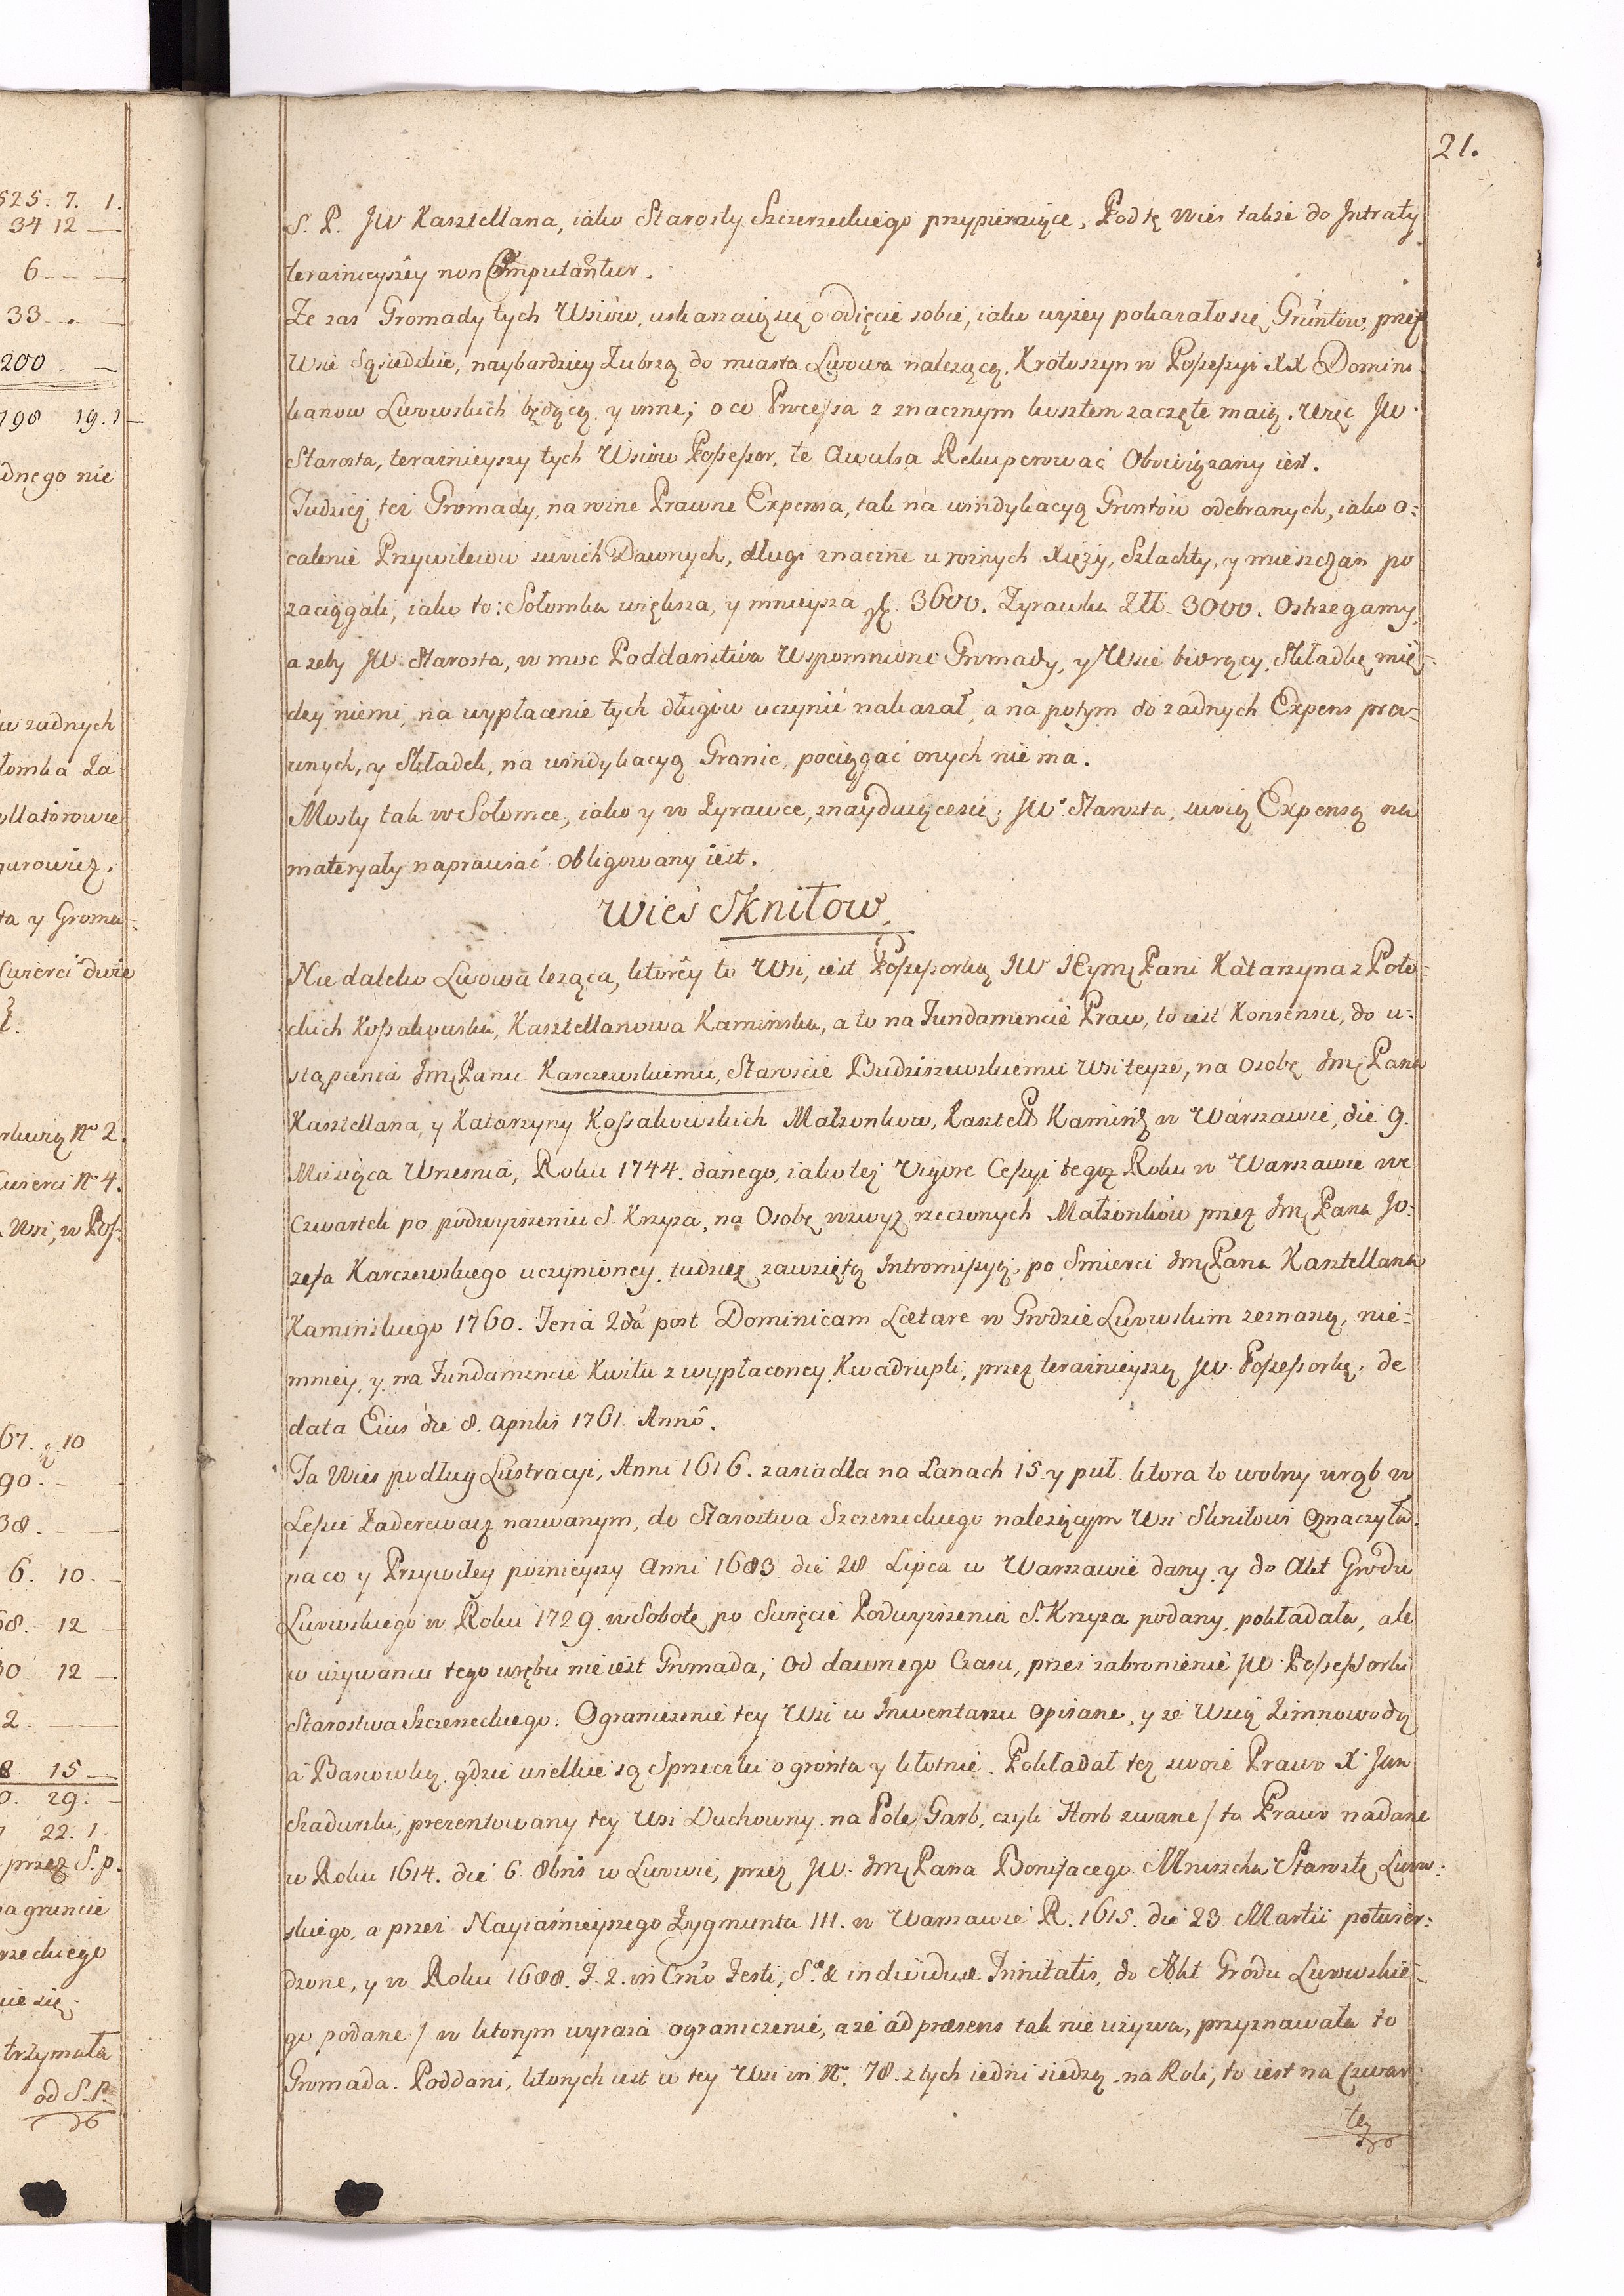 525. 7. 1.
34 12 —
6 — —
33 . —
200 . —
798 19. 1
dnego nie
w zadnych
łomka Za-
ollatorowie
gurowicz.
ta y Groma-
Cwierci dwie
rkwią No 2.
Cwierci No 4.
Wsi, w Poss:
67. 10
90. —
38. —
6. 10. —
68. 12 —
30. 12 —
2. —
8 15 —
0. 29. —
22. 1.
przez S. p.
na gruncie
rzeckiego
nie się
trzymała
od S. P.
21.
S. P. JW Kasztellana, iako Starosty Szczerzeckiego przypieraiące, Pod tę wieś także do Jntraty
teraznieyszey non Computantur.
Ze zas Gromady tych Wsiow, uskarzaią się o odięcie sobie, iako wyżey pokazało się Gruntow, przez
Wsie Sąsiedzkie, naybardziey Zubrzą do miasta Lwowa nalezącą, Krotoszyn w Possessyi XX Domini-
kanow Lwowskich będącą y inne; o co Processa z znacznym kosztem zaczęte maią. Więc JW.
Starosta, teraznieyszy tych Wsiow Possessor, te Awulsa Rekuperować Obowiązany iest.
Tudziez też Gromady, na rozne Prawne Expensa, tak na windykacyą Gruntow odebranych, iako o-
calenie Przywilewow swoich Dawnych, długi znaczne u roznych Xięży, Szlachty, y mieszczan po
zaciągali, iako to: Sołomka większa, y mnieysza zł. 3600. Zyrawka Złł. 3000. Ostrzegamy,
azeby JW. Starosta, w moc Poddanstwa Wspomnione Gromady, y Wsie biorący, Składkę mię-
dzy niemi, na wypłacenie tych długow uczynić nakazał, a na potym do zadnych Expens pra-
wnych, y Składek, na windykacyą Granic, pociągać onych nie ma.
Mosty tak w Sołomce, iako y w Zyrawce, znayduiące się; JW. Starosta, swoią Expensą na
materyały naprawiać obligowany iest.
Wieś Skniłow
Nie daleko Lwowa leząca, ktorey to Wsi, iest Possessorką JW JEymę Pani Katarzyna z Poto-
ckich Kossakowska, Kasztellanowa Kaminska, a to na Fundamencie Praw, to iest Konsensu, do u-
stąpienia Jmę Panu Karczewskiemu, Staroscie Budziszewskiemu Wsi teyze, na osobę Jmę Pana
Kasztellana, y Katarzyny Kossakowskich Małzonkow, Kasztell Kaminś w Warszawie, die 9.
Miesiąca Wrzesnia, Roku 1744. danego, iako też Vigore Cessyi tegoż Roku w Warszawie we
Czwartek po podwyzszeniu S. Krzyza, na Osobę wzwyz rzeczonych Małzonkow przez Jmę Pana Jo-
zefa Karczewskiego uczynioney, tudziez zawziętą Intromissyą, po Smierci Jmę Pana Kasztellana
Kaminskiego 1760. Feria 2da post Dominicam Lætare w Grodzie Lwowskim zeznaną, nie-
mniey, y na Fundamencie Kwitu z wypłaconey Kwadrupli, przez teraznieyszą JW. Possessorkę, de
data Eius die 8. Aprilis 1761. Anno.
Ta Wies podług Lustracyi, Anni 1616. zasiadła na Łanach 15. y puł. ktora to wolny wrąb w
Lessie Zaderewacz nazwanym, do Starostwa Szczerzeckiego nalezącym Wsi Skniłowi oznaczyła.
na co y Przywiley poznieyszy Anni 1683. die 28. Lipca w Warszawie dany, y do Akt Grodu
Lwowskiego w Roku 1729. w Sobotę po Swięcie Podwyzszenia S. Krzyza podany, pokładała, ale
w uzywaniu tego wrębu nie iest Gromada; Od dawnego Czasu, przez zabronienie JW. Possessorki
Starostwa Szczerzeckiego. Ograniczenie tey Wsi w Inwentarzu opisane, y ze Wsią Zimnowodą
a Basowką, gdzie wielkie są Sprzeczki o grunta y kłotnie. Pokładał też swoie Prawo X. Jan
Szadurski, prezentowany tey Wsi Duchowny, na Pole Garb, czyli Horb zwane / to Prawo nadane
w Roku 1614. die 6. 8bris w Lwowie, przez JW. Jmę Pana Bonifacego Mniszcha Starostę Lwow-
skiego, a przez Nayiaśnieyszego Zygmunta III. w Warszawie R. 1615. die 23. Martii potwier-
dzone, y w Roku 1688. F. 2. in Crno Festi, S. & individuæ Trinitatis, do Akt Grodu Lwowskie-
go podane / w ktorym wyraza ograniczenie, a ze ad præsens tak nie uzywa, przyznawała to
Gromada. Poddani, ktorych iest w tey Wsi in No. 78. z tych iedni siedzą na Roli, to iest na Czwar-
tey